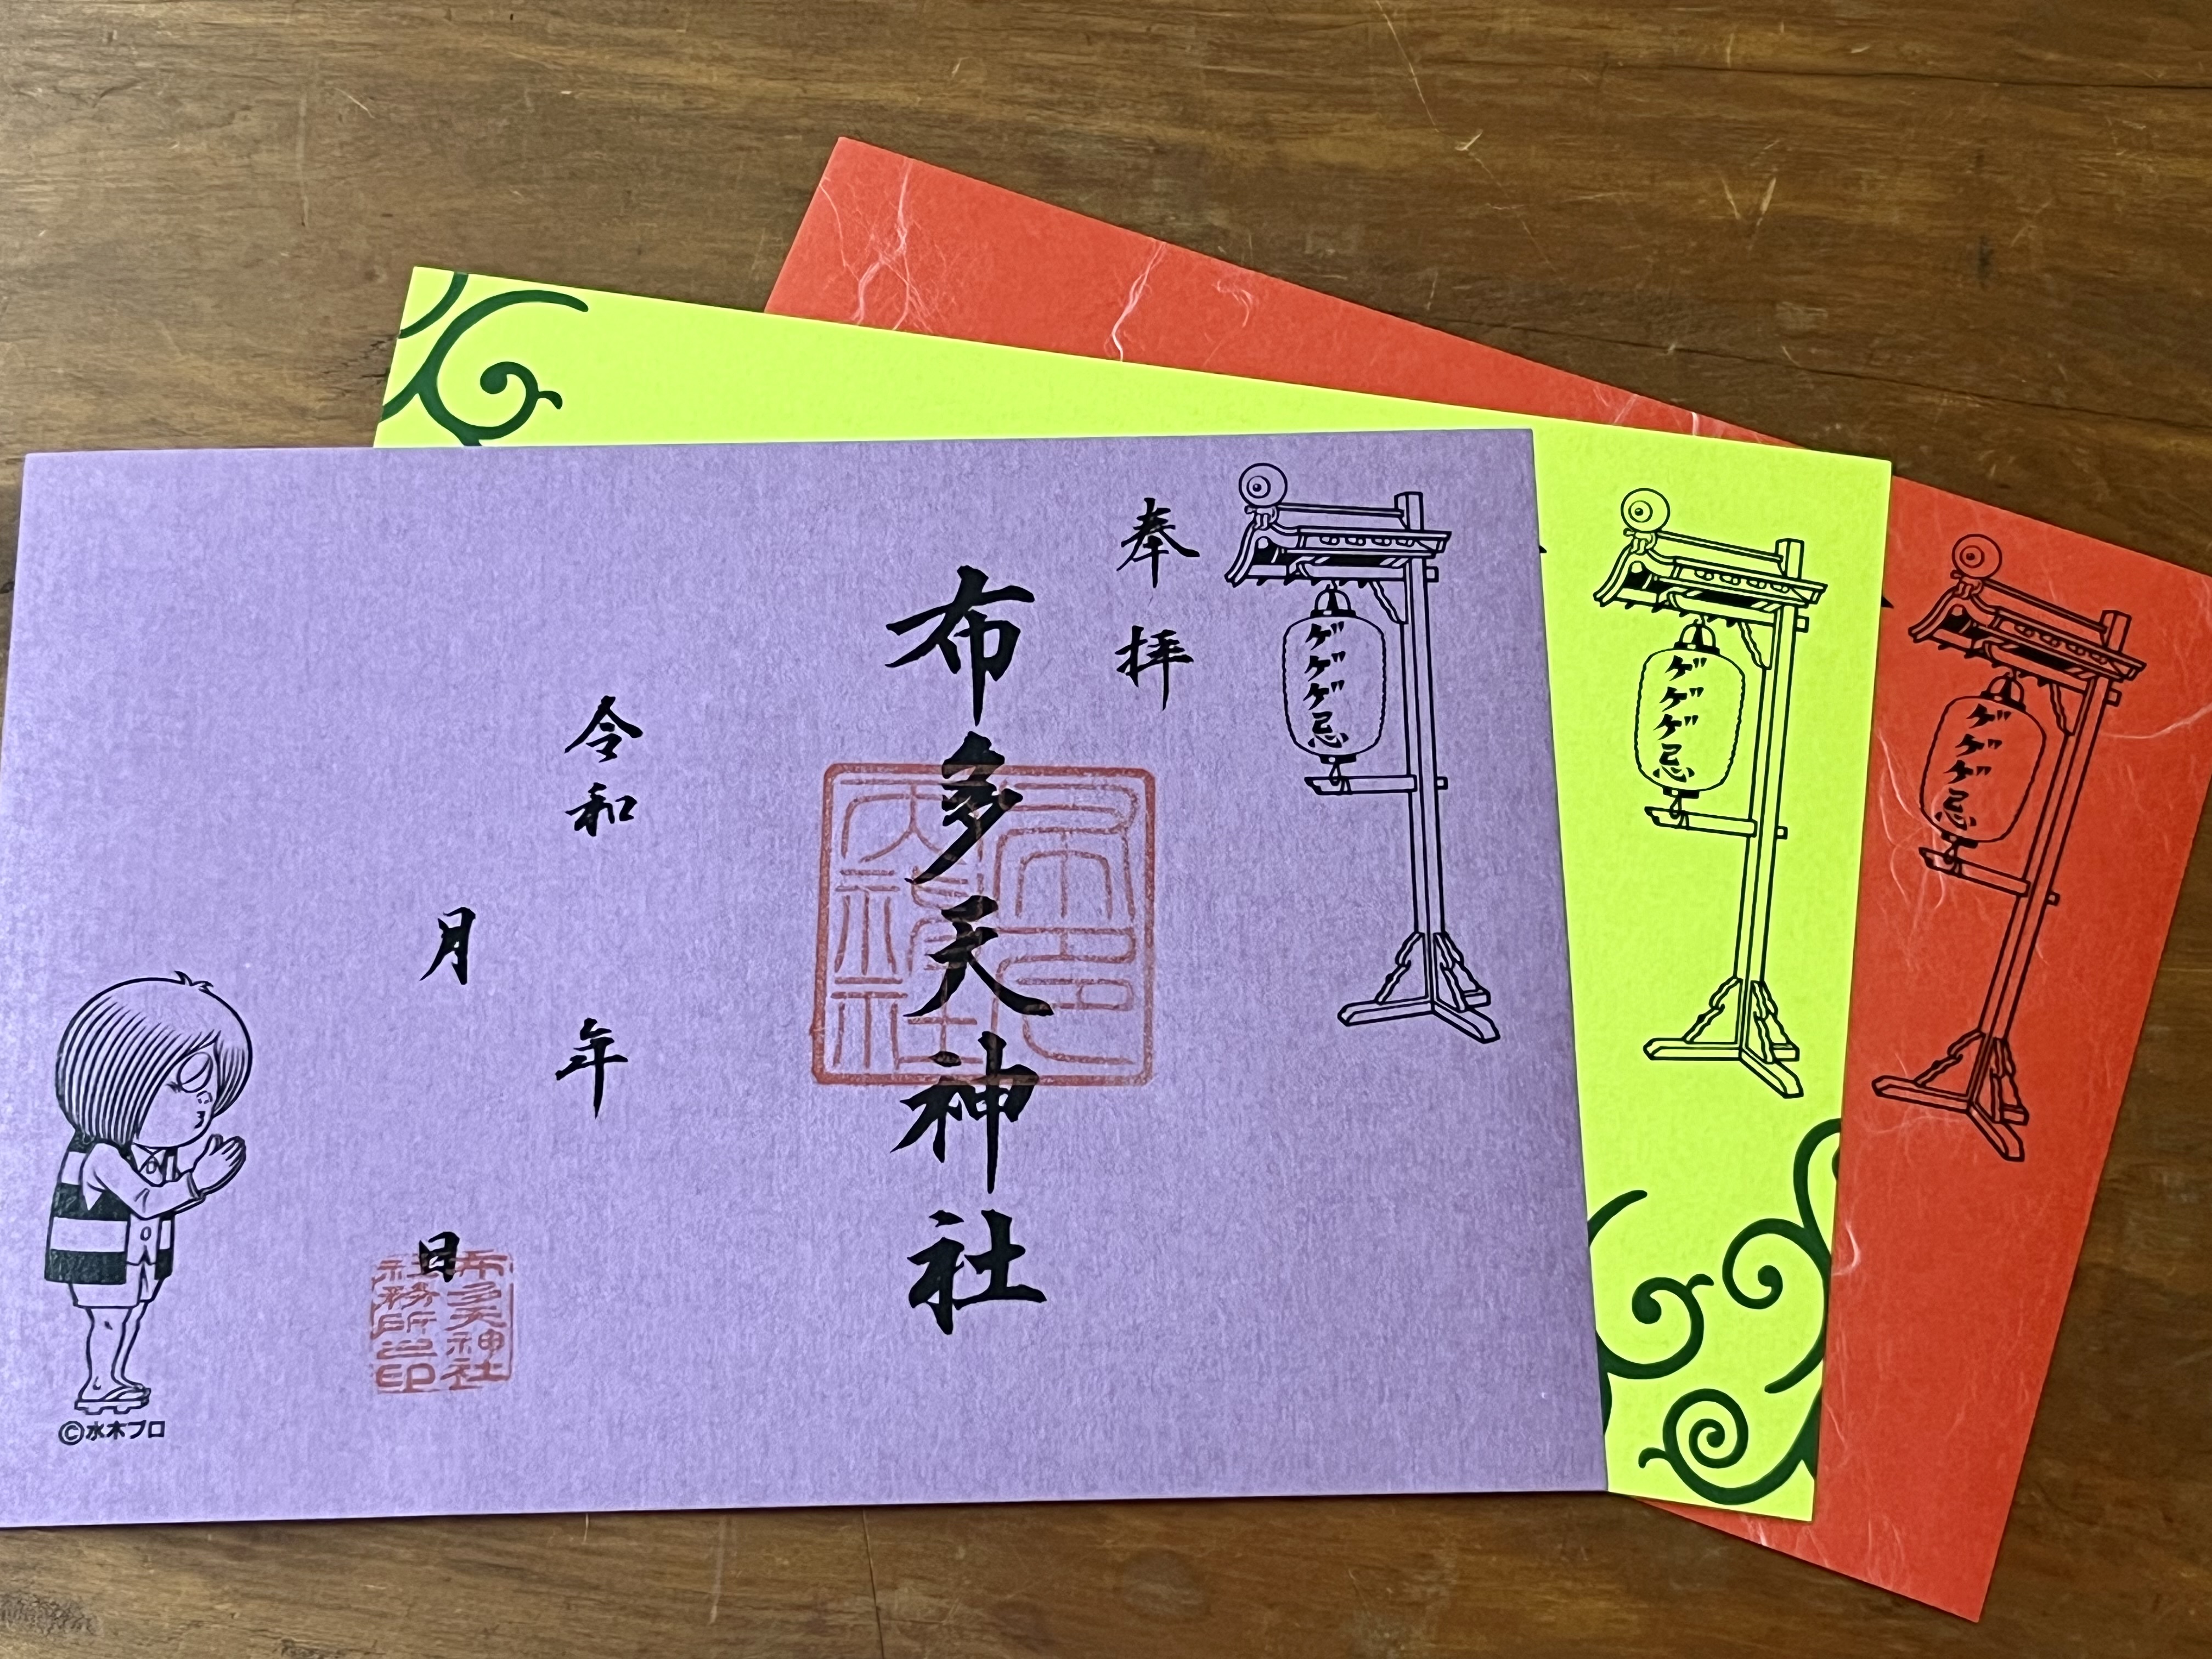 ゲゲゲ忌
奉拝
布多天神社
令和
年
月
日
布多天神社
社務所之印
©水木プロ
ゲゲゲ忌
ゲゲゲ忌